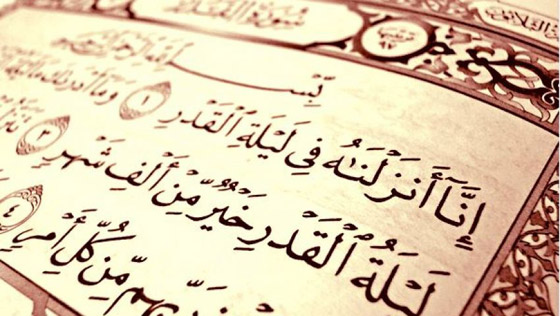 سُورَةُ الْقَدْرِ
بِسْمِ اللَّهِ الرَّحْمَٰنِ الرَّحِيمِ
إِنَّا أَنزَلْنَٰهُ فِي لَيْلَةِ الْقَدْرِ ١ وَمَا أَدْرَىٰكَ مَا لَيْلَةُ
لَيْلَةُ الْقَدْرِ خَيْرٌ مِّنْ أَلْفِ شَهْرٍ ٣ تَنَزَّلُ
رَبِّهِم مِّن كُلِّ أَمْرٍ ٤